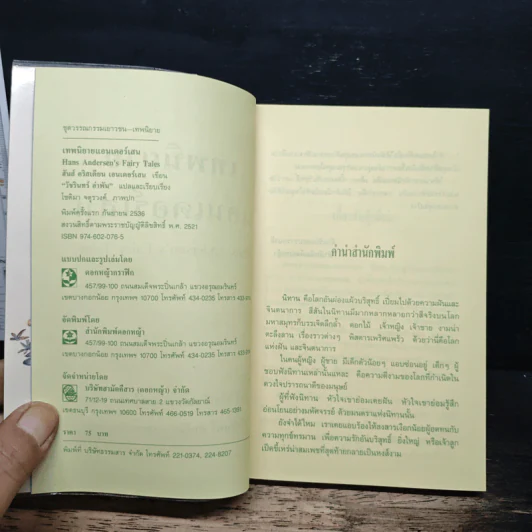 ชุดวรรณกรรมเยาวชน-เทพนิยาย
เทพนิยายแอนเดอร์เสน
Hans Andersen's Fairy Tales
ฮันส์ คริสเตียน แอนเดอร์เสน เขียน
"วัชรินทร์ อำพัน" แปลและเรียบเรียง
โชติมา จตุรวงค์ ภาพปก
พิมพ์ครั้งแรก กันยายน 2536
สงวนลิขสิทธิ์ตามพระราชบัญญัติลิขสิทธิ์ พ.ศ. 2521
ISBN 974-602-076-5
แบบปกและรูปเล่มโดย
ดอกหญ้ากราฟิค
457/99-100 ถนนสมเด็จพระปิ่นเกล้า แขวงอรุณอมรินทร์
เขตบางกอกน้อย กรุงเทพฯ 10700 โทรศัพท์ 434-0235 โทรสาร
จัดพิมพ์โดย
สำนักพิมพ์ดอกหญ้า
457/99-100 ถนนสมเด็จพระปิ่นเกล้า แขวงอรุณอมรินทร์
เขตบางกอกน้อย กรุงเทพฯ 10700 โทรศัพท์ 434-0235 โทรสาร
จัดจำหน่ายโดย
บริษัทสามัคคีสาร (ดอกหญ้า) จำกัด
71/12-19 ถนนเทศบาลสาย 2 แขวงวัดกัลยาณ์
เขตธนบุรี กรุงเทพฯ 10600 โทรศัพท์ 466-0519 โทรสาร
ราคา 75 บาท
พิมพ์ที่ บริษัทธรรมสาร จำกัด โทรศัพท์ 221-0374, 224-8207
คำนำสำนักพิมพ์
นิทาน คือโลกอันผ่องแผ้วบริสุทธิ์ เปี่ยมไปด้วยความฝันและ
จินตนาการ สีสันในนิทานมีมากหลากหลายกว่าสีจริงบนโลก
มหาสมุทรก็บรรเจิดมีกล้ำ ดอกไม้ เจ้าหญิง เจ้าชาย งามน่า
ตะลึงลาน เรื่องราวต่างๆ พิสดารเพริศแพร้ว ด้วยว่านี่คือโลก
แห่งฝัน และจินตนาการ
ในตนผู้หญิง ผู้ชาย มีเด็กตัวน้อยๆ แอบซ่อนอยู่ เด็กๆ ผู้
ชอบฟังนิทานเหล่านั้นแหละ คือความดีงามของโลกที่กำเนิดใน
ดวงใจปรารถนาดีของมนุษย์
ผู้ที่ฟังนิทาน หัวใจเขาย่อมเคยฝัน หัวใจเขาย่อมรู้สึก
อ่อนโยนอย่างมหัศจรรย์ ด้วยมนตราแห่งนิทานนั้น
ยังจำได้ไหม เราเคยแอบร้องไห้สงสารเงือกน้อยผู้อดทนกับ
ความทุกข์ทรมาน เพื่อความรักอันบริสุทธิ์ ยิ่งใหญ่ หรือเจ้าลูก
เป็ดขี้เหร่น่าสมเพชที่สุดท้ายกลายเป็นหงส์งาม